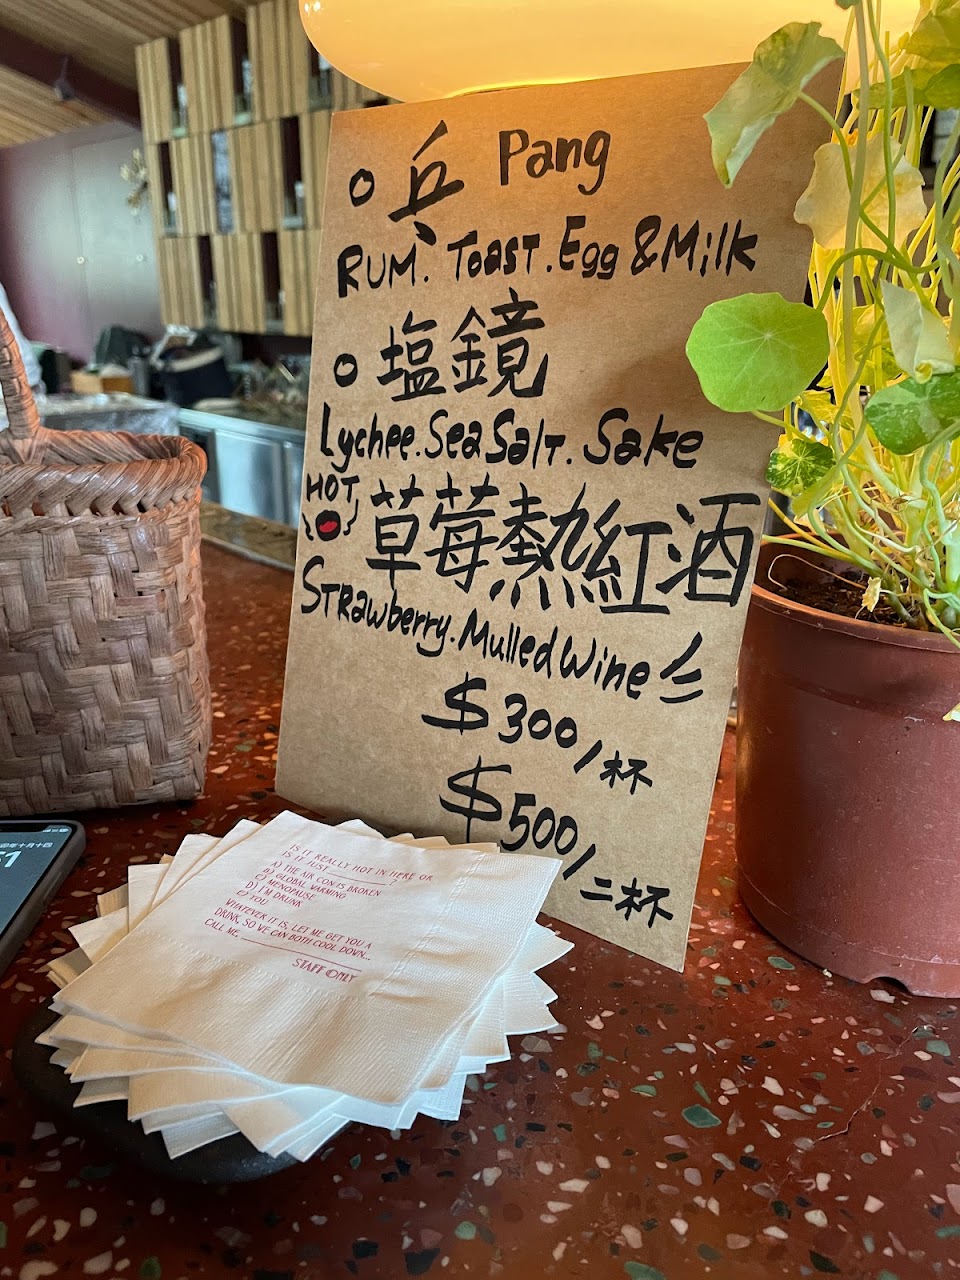 乓 Pang
RUM. Toast. Egg & Milk
塩鏡
Lychee. Sea Salt. Sake
HOT
草莓熱紅酒
Strawberry. Mulled Wine
$300/杯
$500/二杯
年十月十四
IS IT REALLY HOT IN HERE OR
IS IT JUST ________?
A) THE AIR CON IS BROKEN
B) GLOBAL WARMING
C) MENOPAUSE
D) I'M DRUNK
E) YOU
WHATEVER IT IS, LET ME GET YOU A
DRINK, SO WE CAN BOTH COOL DOWN...
CALL ME, ________
STAFF ONLY